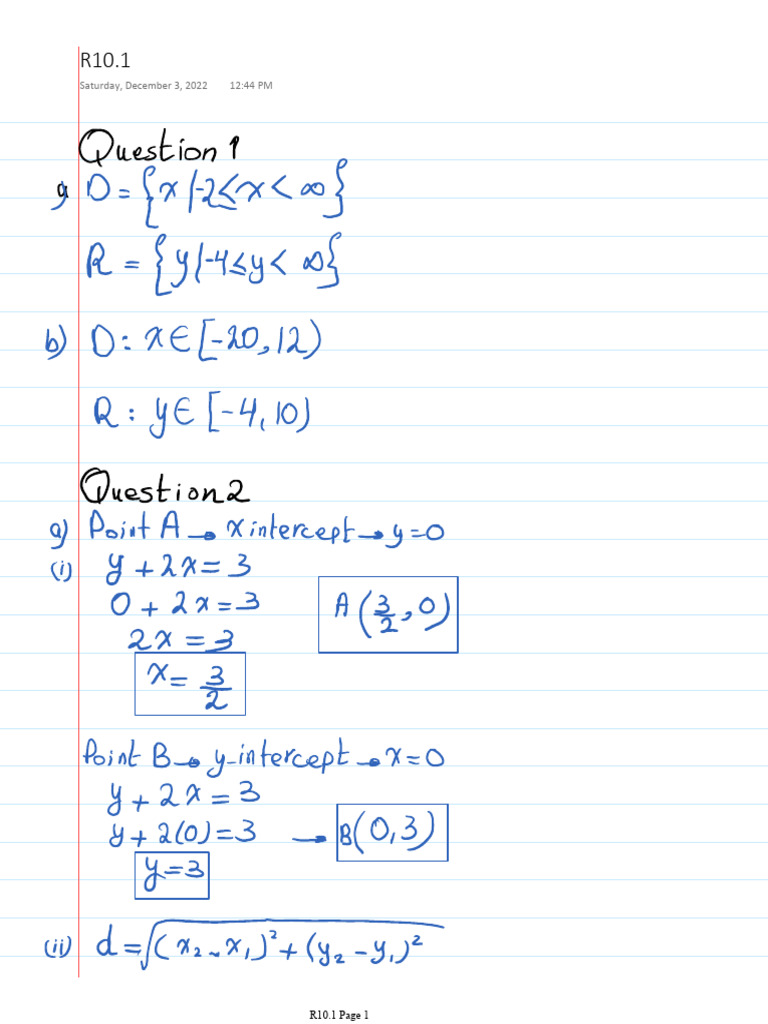 R10.1
Saturday, December 3, 2022 12:44 PM
Question 1
a) D = {x/-2≤x< ∞}
R = {y/-4≤y< ∞}
b) D: x∈[-20,12)
R: y∈[-4,10)
Question 2
a) Point A → x intercept → y=0
(i) y + 2x = 3
0 + 2x = 3
2x = 3
x = 3/2
A(3/2, 0)
Point B → y-intercept → x=0
y + 2x = 3
y + 2(0) = 3 → B(0,3)
y=3
(ii) d = √(x₂ - x₁)² + (y₂ - y₁)²
R10.1 Page 1